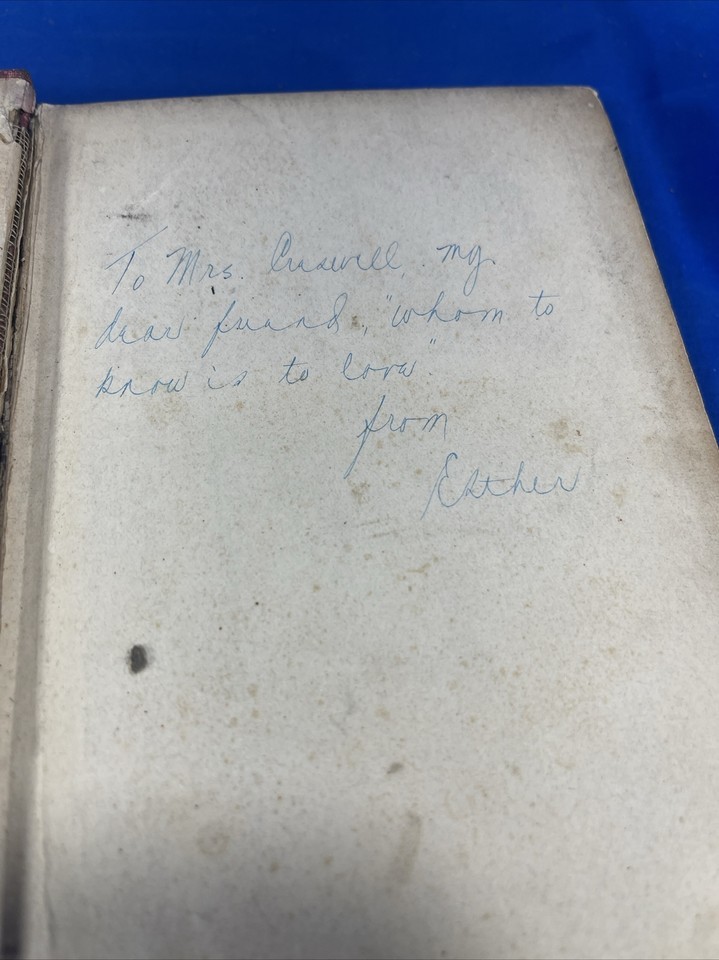 To Mrs. Creswell, my
dear friend, "whom to
know is to love"
from
Esther